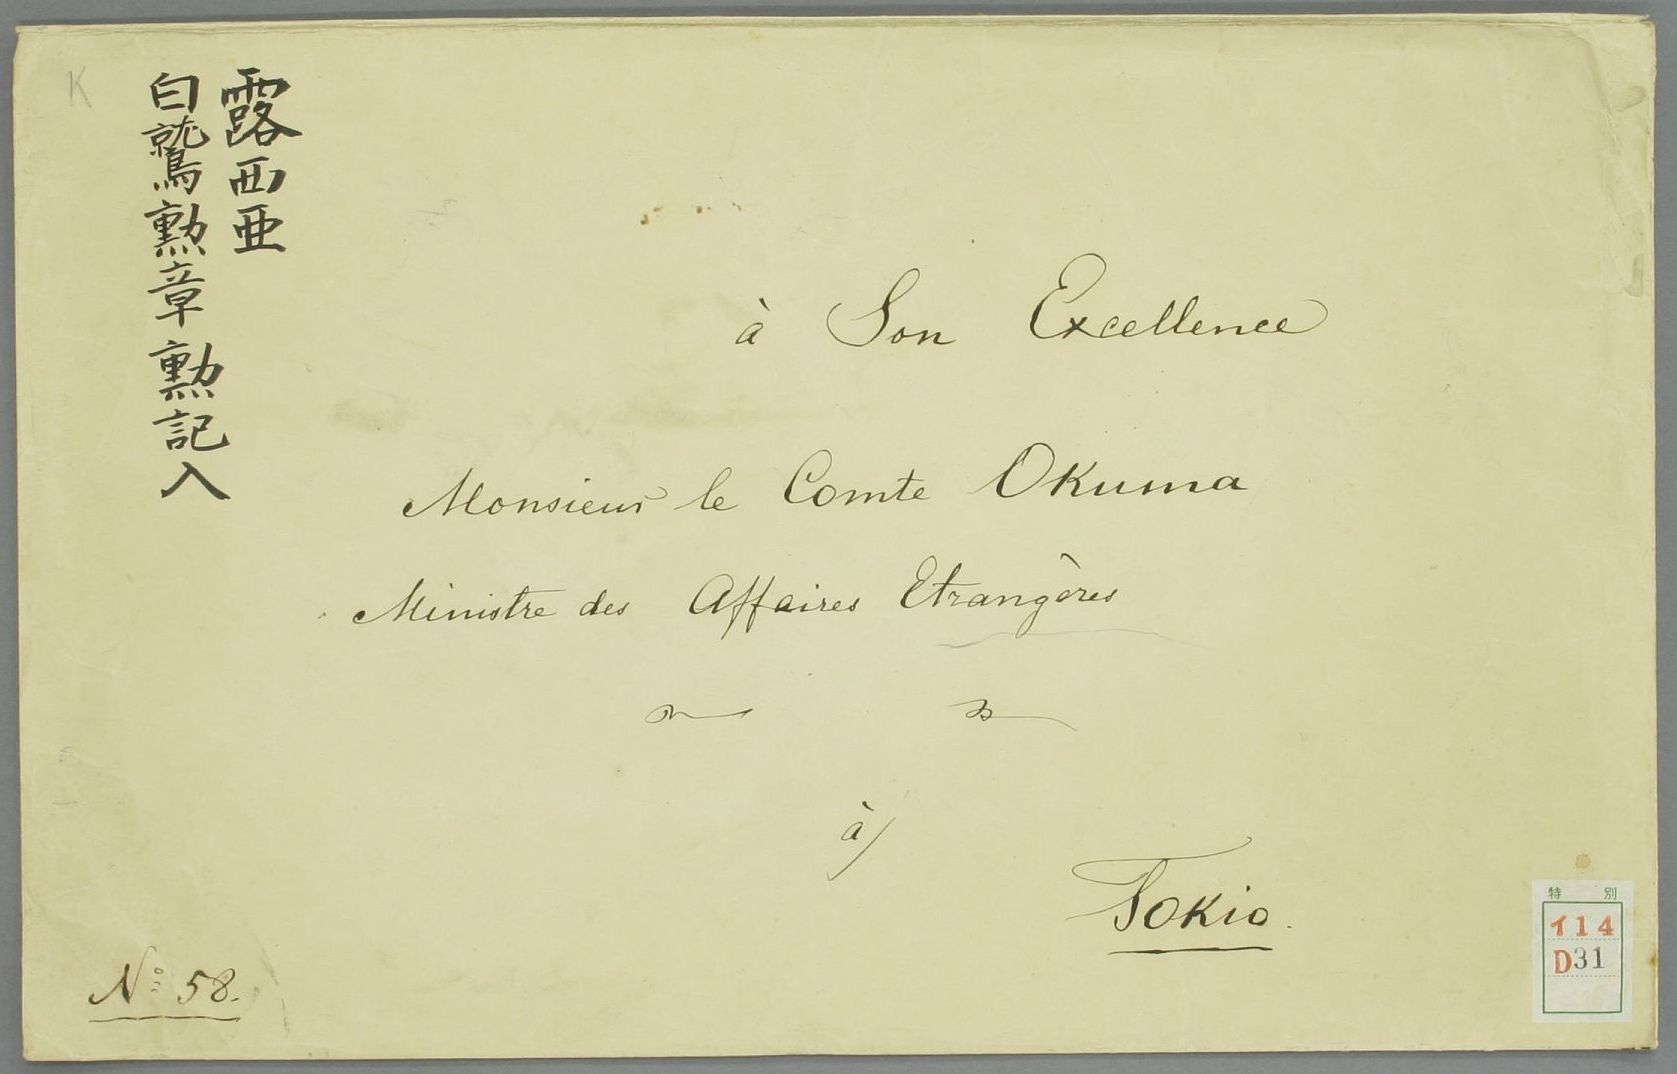 K
露西亜
白鷲勲章勲記入
à Son Excellence
Monsieur le Comte Okuma
Ministre des Affaires Etrangères
à
Tokio.
No 58.
特別
イ14
D31